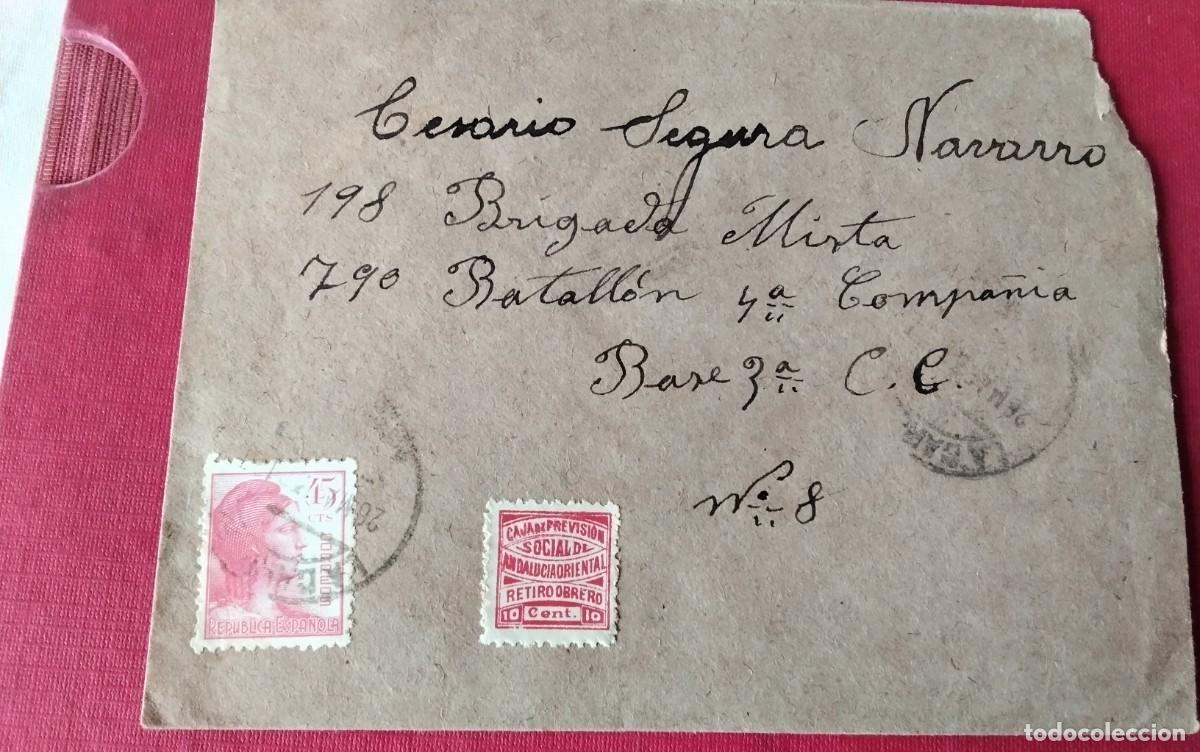 Cesario Segura Navarro
198 Brigada Mixta
790 Batallón 4ª Compañia
Base 3ª C. C.
Nº 8
45
CTS
CORREOS
REPUBLICA ESPAÑOLA
CAJA DE PREVISIÓN
SOCIAL DE
ANDALUCIA ORIENTAL
RETIRO OBRERO
10 Cent. 10
todocoleccion